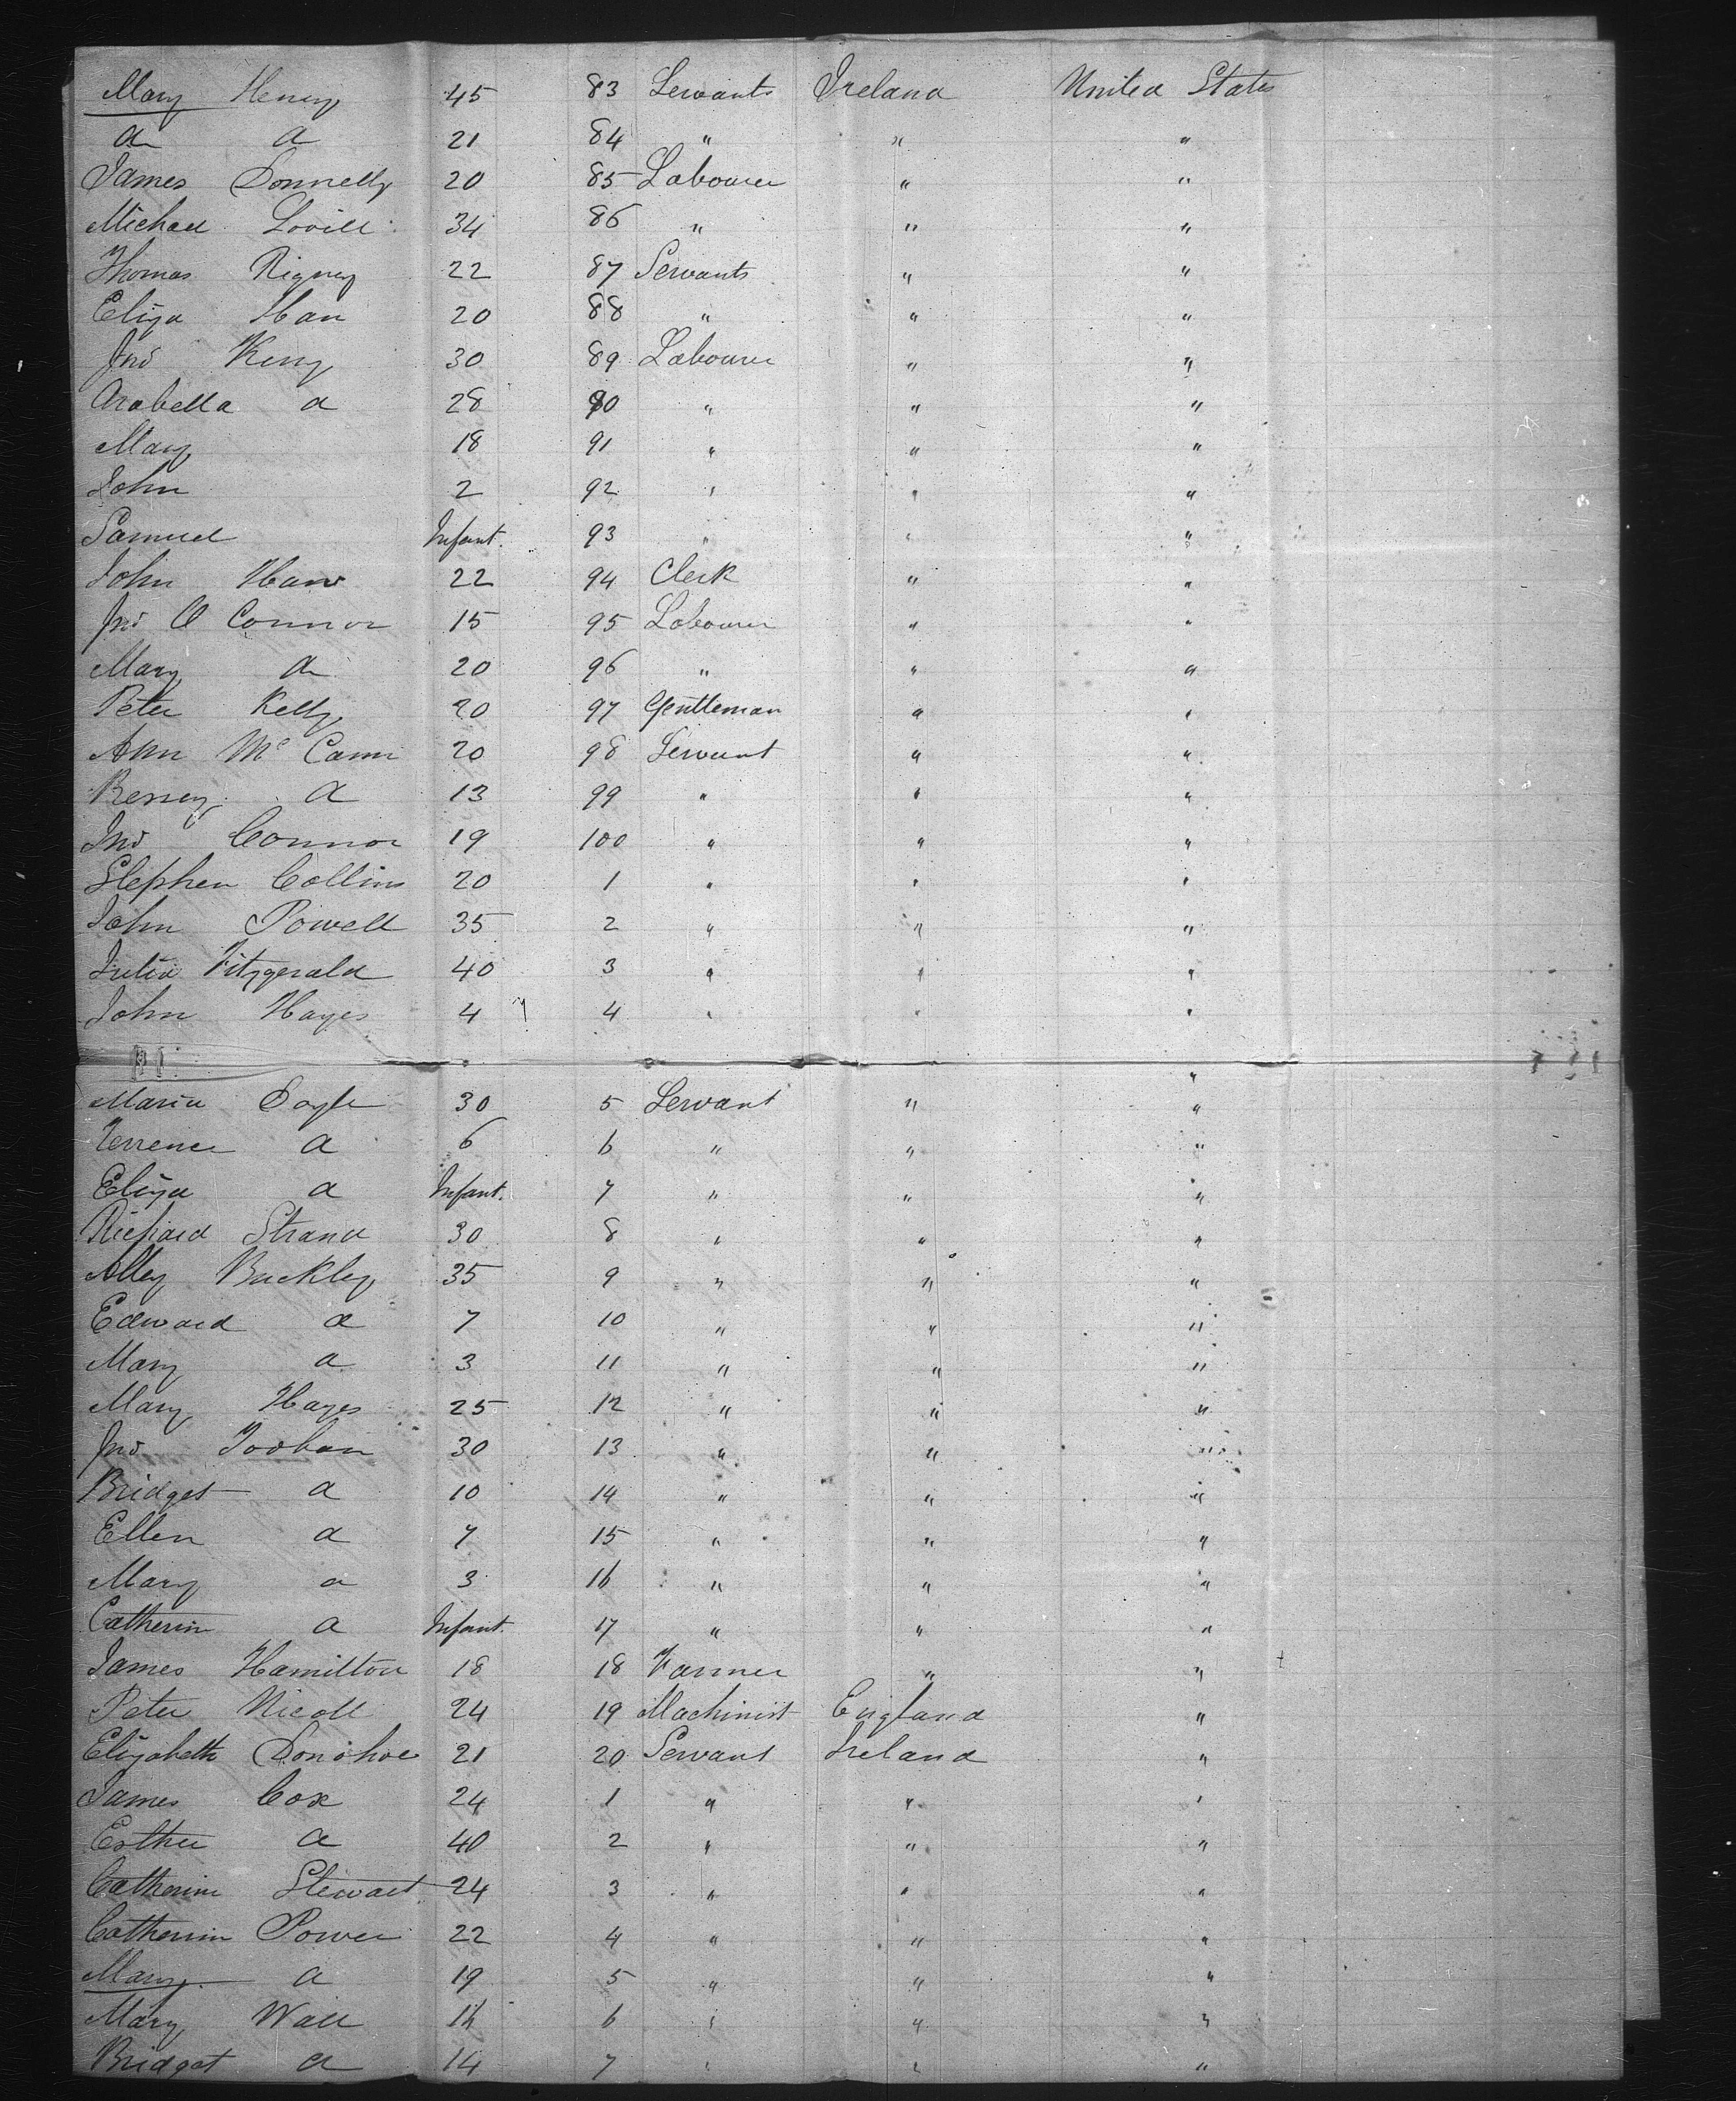 Mary Henry 45 83 Servants Ireland United States
a a 21 84 " " "
James Donnelly 20 85 Labourer " "
Michael 34 86 " " "
Thomas Rigney 22 87 Servants " "
Eliza Han 20 88 " " "
Jno King 30 89 Labourer " "
Arabella a 28 90 " " "
Mary 18 91 " " "
John 2 92 " " "
Samuel Infant. 93 " " "
John Haw 22 94 Clerk " "
Jno O Connor 15 95 Labourer " "
Mary a 20 96 " " "
Peter Kelly 20 97 Gentleman " "
Ann Mc Cann 20 98 Servant " "
a 13 99 " " "
Jno Connor 19 100 " " "
Stephen Collins 20 1 " " "
John Powell 35 2 " " "
Julia Fitzgerald 40 3 " " "
John Hayes 4 4 " " "
Maria Doyle 30 5 Servant " "
Terrence a 6 6 " " "
Eliza a Infant. 7 " " "
Richard Strand 30 8 " " "
Alley Buckley 35 9 " " "
Edward a 7 10 " " "
Mary a 3 11 " " "
Mary Hayes 25 12 " " "
Jno 30 13 " " "
Bridget a 10 14 " " "
Ellen a 7 15 " " "
Mary a 3 16 " " "
Catherin a Infant. 17 " " "
James Hamilton 18 18 Farmer " "
Peter Nicoll 24 19 Machinist England "
Elizabeth Donohoe 21 20 Servant Ireland "
James Cox 24 1 " " "
Esther a 40 2 " " "
Catherine Stewart 24 3 " " "
Catherin Power 22 4 " " "
Mary a 19 5 " " "
Mary Wall 6 " " "
Bridget a 14 7 " " "